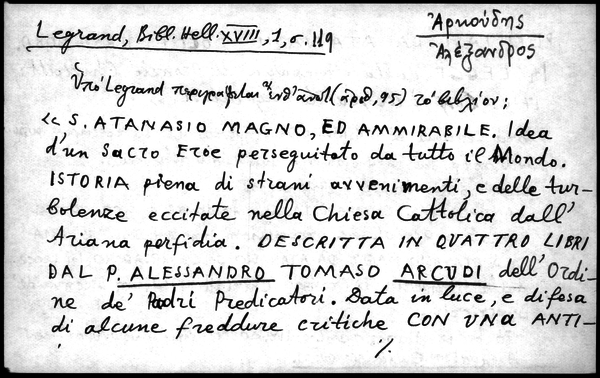 Ἀρκούδης
Ἀλέξανδρος
Legrand, Bibl. Hell. XVIII, 1, σ. 119
Ὑπό Legrand περιγράφεται (ἀριθ. 95) τό βιβλίον:
« S. ATANASIO MAGNO, ED AMMIRABILE. Idea
d'un Sacro Eroe perseguitato da tutto il Mondo.
ISTORIA piena di strani avvenimenti, e delle tur-
bolenze eccitate nella Chiesa Cattolica dall'
Ariana perfidia. DESCRITTA IN QUATTRO LIBRI
DAL P. ALESSANDRO TOMASO ARCUDI dell'Ordi-
ne de' Padri Predicatori. Data in luce, e difesa
di alcune freddure critiche CON UNA ANTI-
./.